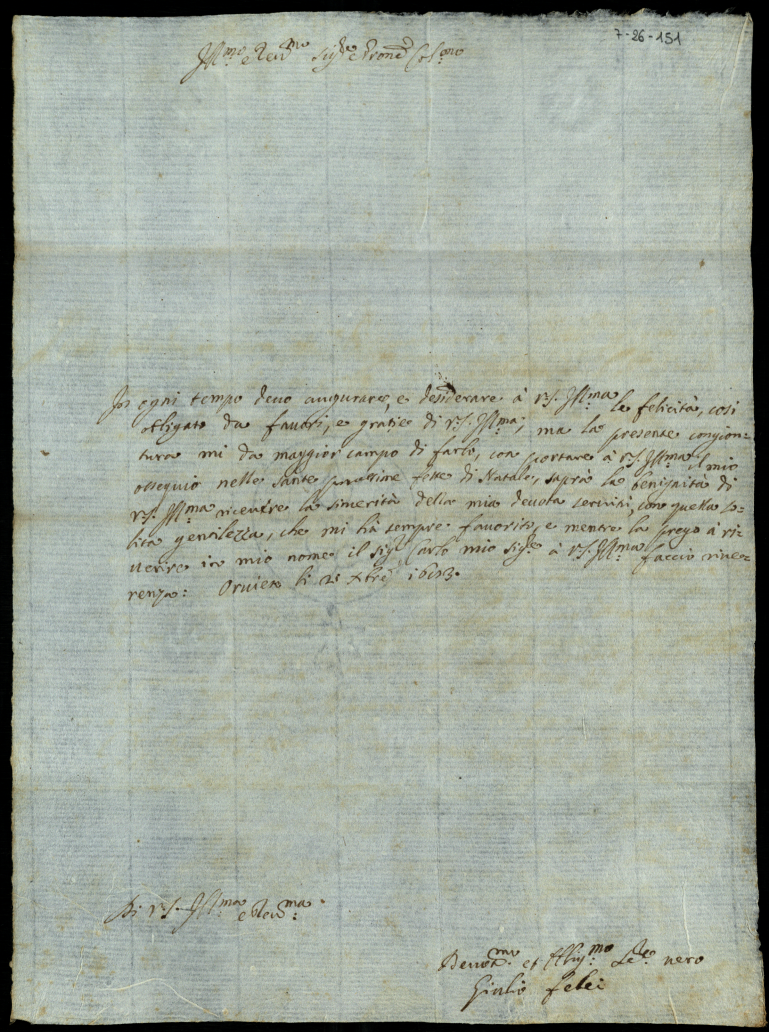 7-26-151
Ill.mo e Rev.mo Sig.re e Pron Col.mo
In ogni tempo devo augurare, e desiderare à V.S. Ill.ma le felicità, così
obligato da favori, e gratie di V.S. Ill.ma; ma la presente congion-
tura mi dà maggior campo di farlo, con portare à V.S. Ill.ma il mio
ossequio nelle sante prossime feste di Natale, saprà la benignità di
V.S. Ill.ma ricevere la sincerità della mia devota servitù, con quella so-
lita gentilezza, che mi hà sempre favorito, e mentre la prego à ri-
verire in mio nome il Sig.r Carlo mio Sig.re à V.S. Ill.ma faccio rive-
renza: Orvieto li Xbre
Di V.S. Ill.ma e Rev.ma
Devot.mo et Oblig.mo Se.re vero
Giulio Febei